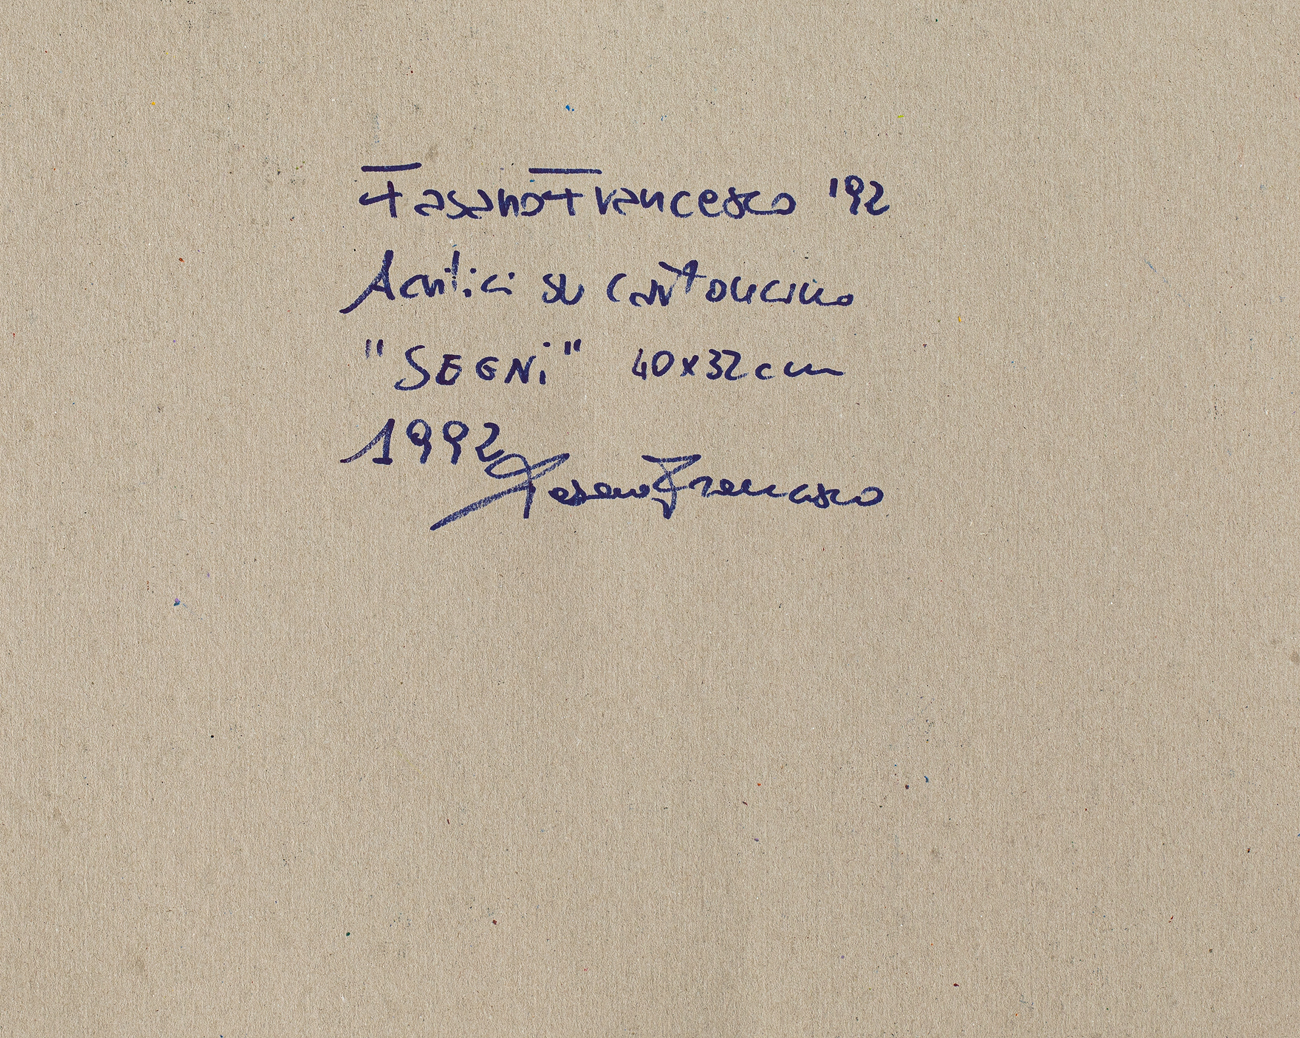 Fasano Francesco '92
Acrilici su cartoncino
"SEGNi" 40x32 cm
1992
Fasano Francesco